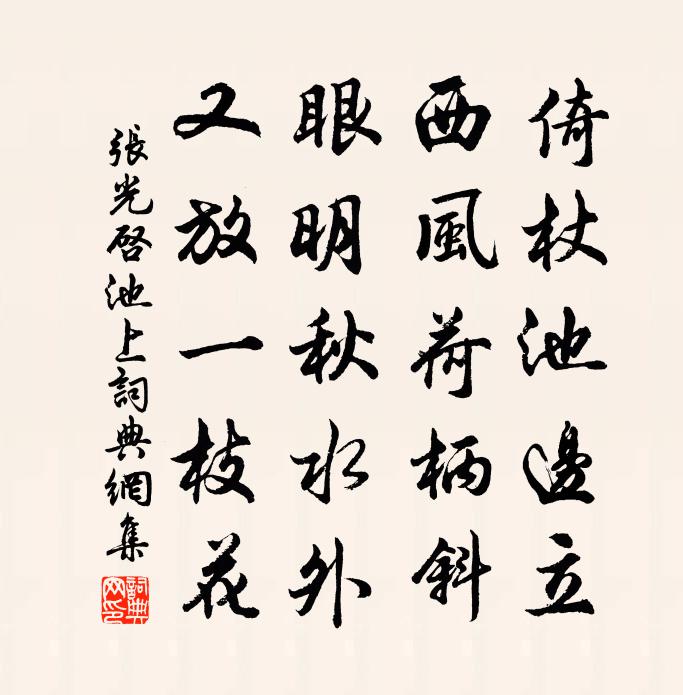 倚杖池邊立
西風荷柄斜
眼明秋水外
又放一枝花
張光啓池上詞典網集
詞典網印